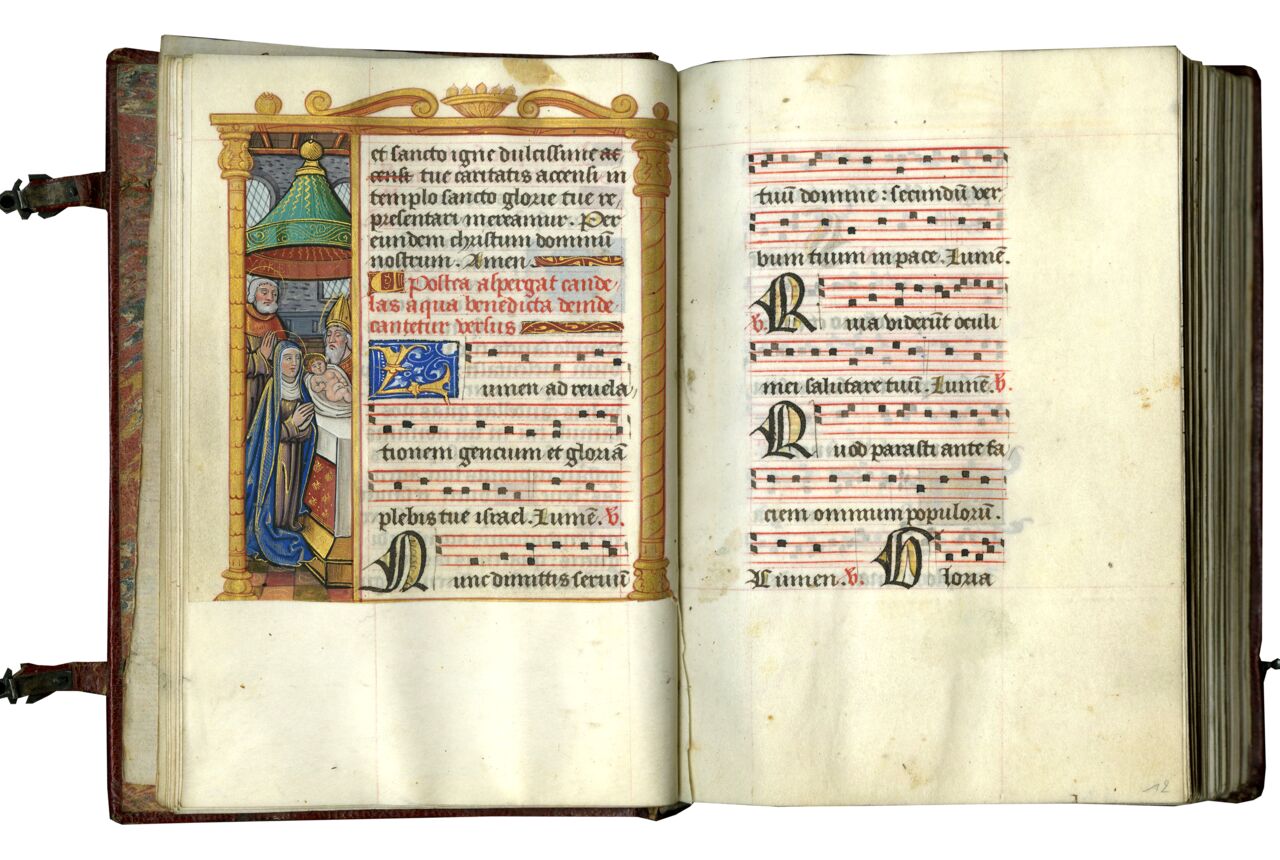 et sancto igne dulcissime ac
censt tue caritatis accensi in
templo sancto glorie tue re,
presentari mereamur. Per
eundem christum dominū
nostrum. Amen.
Postea aspergat cande-
las aqua benedicta deinde
cantetur versus
Lumen ad revela,
tionem gencium et gloriā
plebis tue israel. Lumē. v.
Nunc dimittis servū
tuū domine : secundū ver,
bum tuum in pace. Lumē.
v. Quia viderūt oculi
mei salutare tuū. Lumē. v.
Quod parasti ante fa
ciem omnium populorū.
Lumen. v. Gloria
12